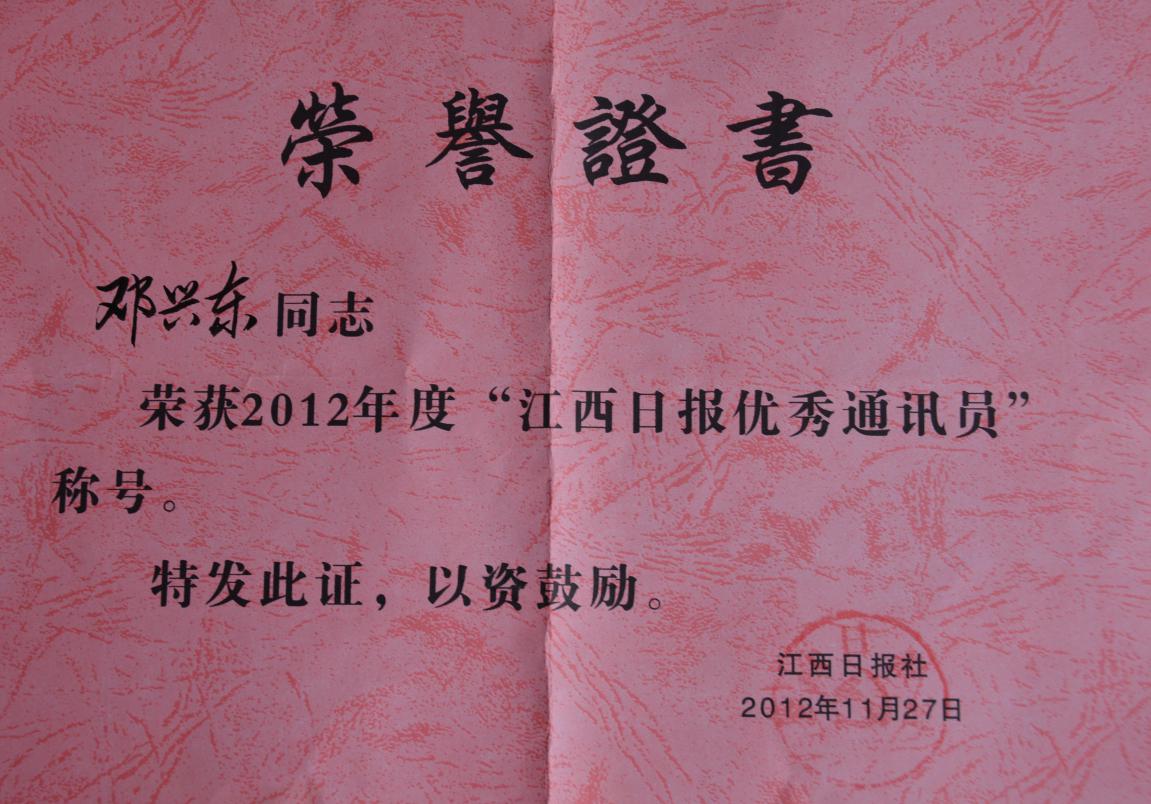 榮譽證書
邓兴东同志
荣获2012年度“江西日报优秀通讯员”
称号。
特发此证，以资鼓励。
江西日报社
2012年11月27日